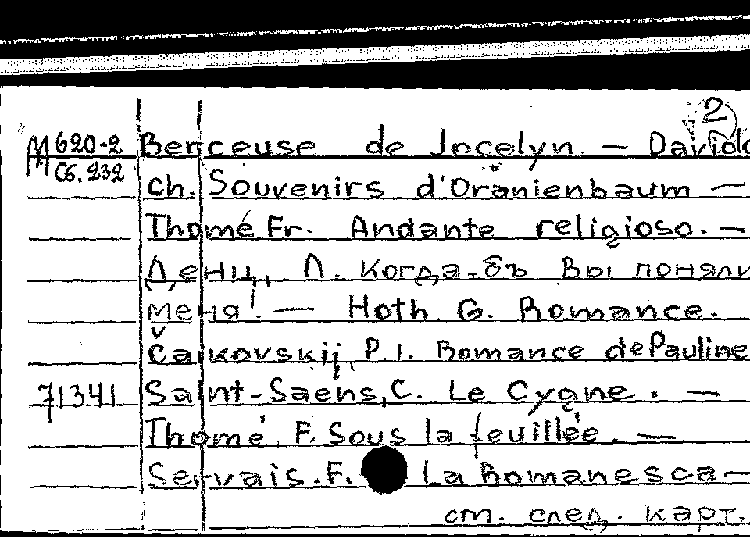 2
М 620-2 Berceuse de Jocelyn. — Davido
Сб. 232 ch. Souvenirs d'Oranienbaum —
Thomé Fr. Andante religioso. —
Денц, Л. Когда-бъ Вы поняли
меня! — Hoth. G. Romance.
Čaikovskij P.I. Romance de Pauline
71341 Saint-Saens, C. Le Cygne. —
Thomé F. Sous la feuillée. —
Servais. F. La Romanesca —
см. след. карт.